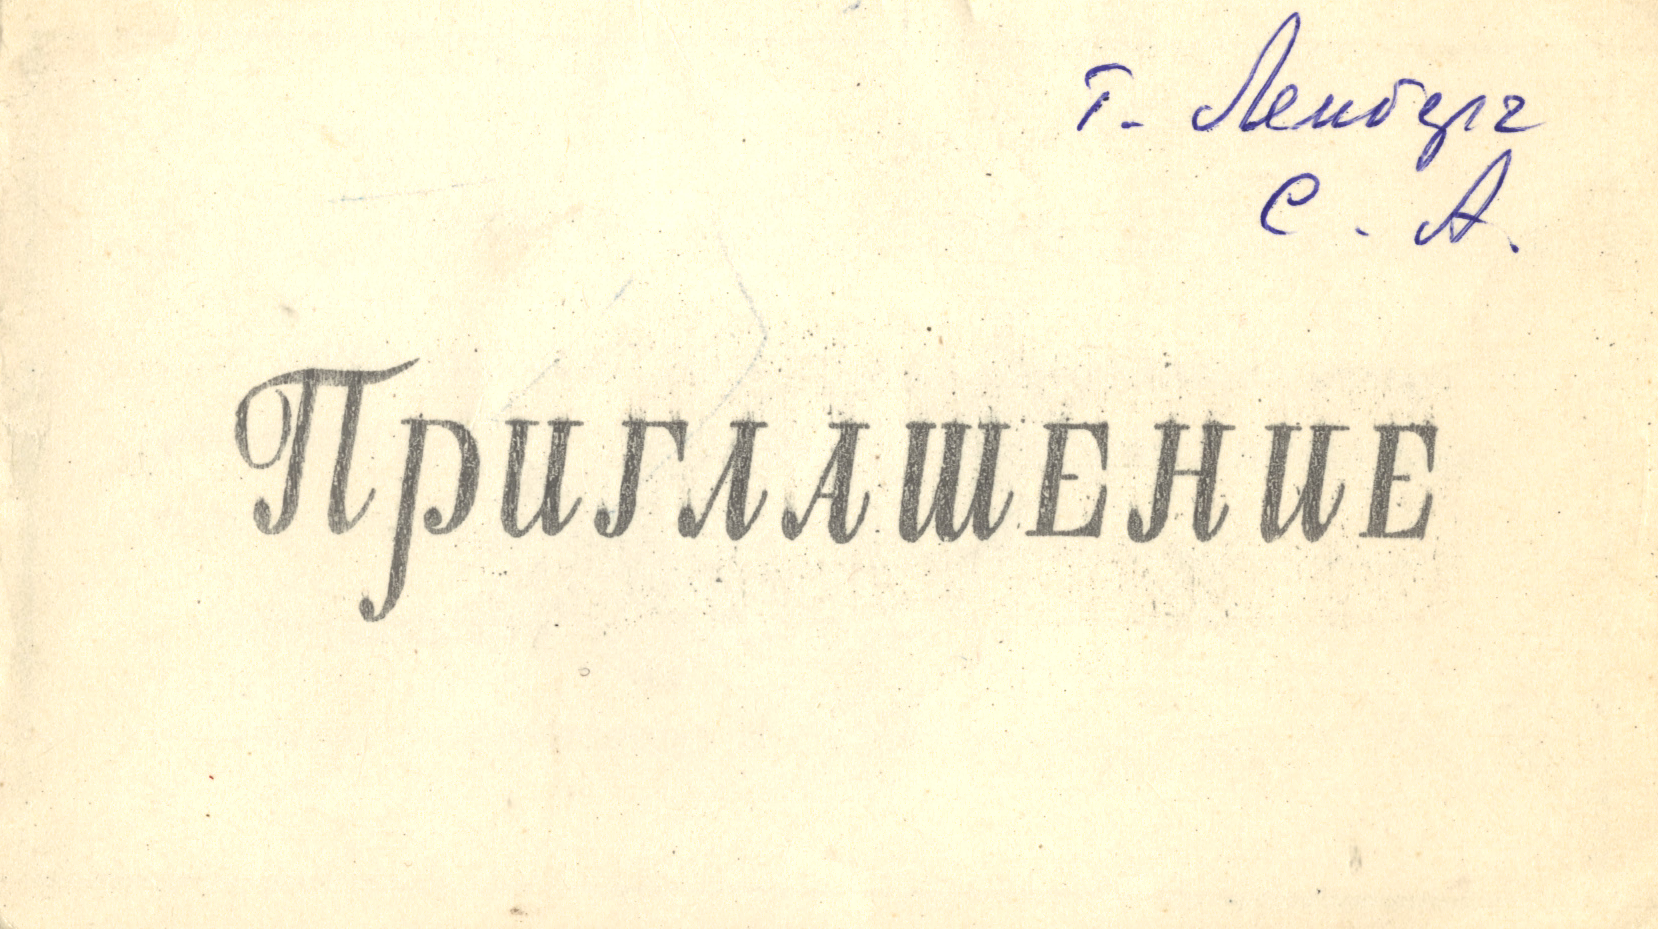 т. Лемберг
С. А.
Приглашение